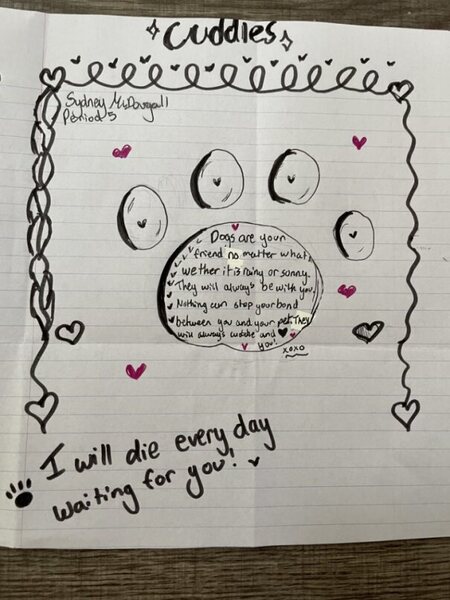 Cuddles
Sydney McDougall
Period 5
Dogs are your
friend no matter what
wether it is rainy or sonny.
They will always be with you
Nothing can stop your bond
between you and your pet. They
will always cuddle and ♥
you!
xoxo
I will die every day
waiting for you!